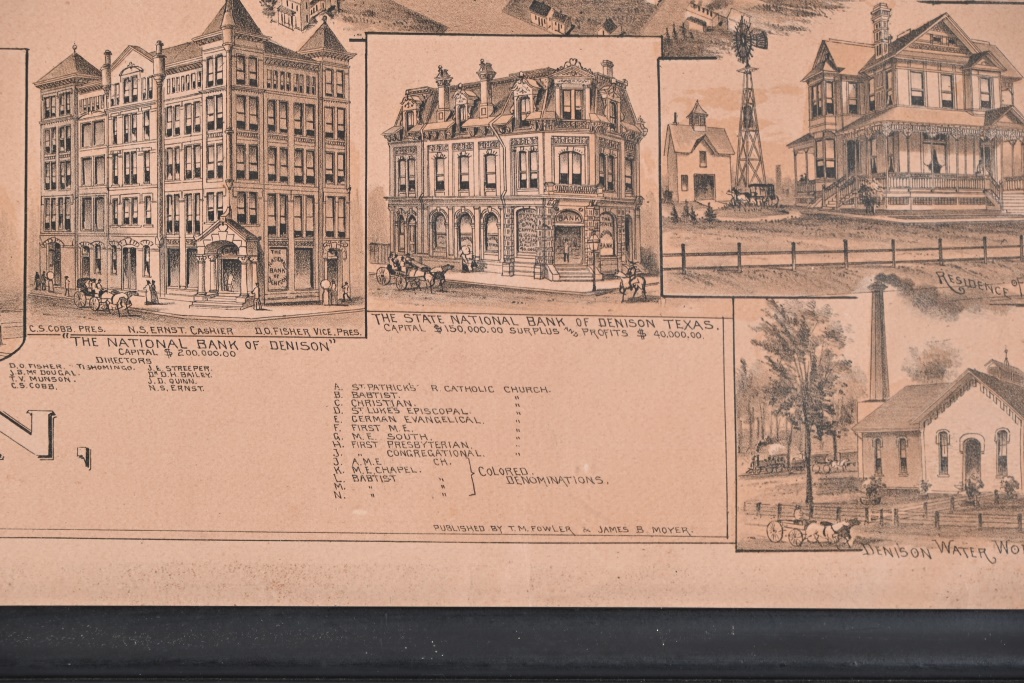 BANK
BANK
C.S. COBB, PRES. N.S. ERNST, CASHIER D.O. FISHER VICE, PRES.
"THE NATIONAL BANK OF DENISON"
CAPITAL $ 200,000.00
DIRECTORS
D.O. FISHER. - TISHOMINGO. J.E. STREEPER.
J.B. Mc DOUGAL. DR D.H. BAILEY.
T.V. MUNSON. J.D. QUINN.
C.S. COBB. N.S. ERNST.
THE STATE NATIONAL BANK OF DENISON TEXAS.
CAPITAL $150,000.00 SURPLUS AND PROFITS $ 40,000.00.
RESIDENCE OF
N,
A. ST. PATRICK'S R. CATHOLIC CHURCH.
B. BABTIST. "
C. CHRISTIAN. "
D. ST LUKES EPISCOPAL. "
E. GERMAN EVANGELICAL. "
F. FIRST M.E. "
G. M.E. SOUTH. "
H. FIRST PRESBYTERIAN. "
J. " CONGREGATIONAL. "
J. A.M.E. CH.
K. M.E. CHAPEL. COLORED.
L. BABTIST " DENOMINATIONS.
M. " "
N. " "
PUBLISHED BY T.M. FOWLER & JAMES B. MOYER.
DENISON WATER WO